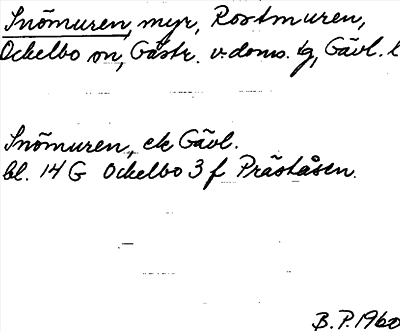 Snömuren, myr, Rostmuren,
Ockelbo sn, Gästr. v. doms. tg, Gävl. l
Snömuren, ek Gävl.
bl. 14 G Ockelbo 3 f Präståsen.
B.P. 1960